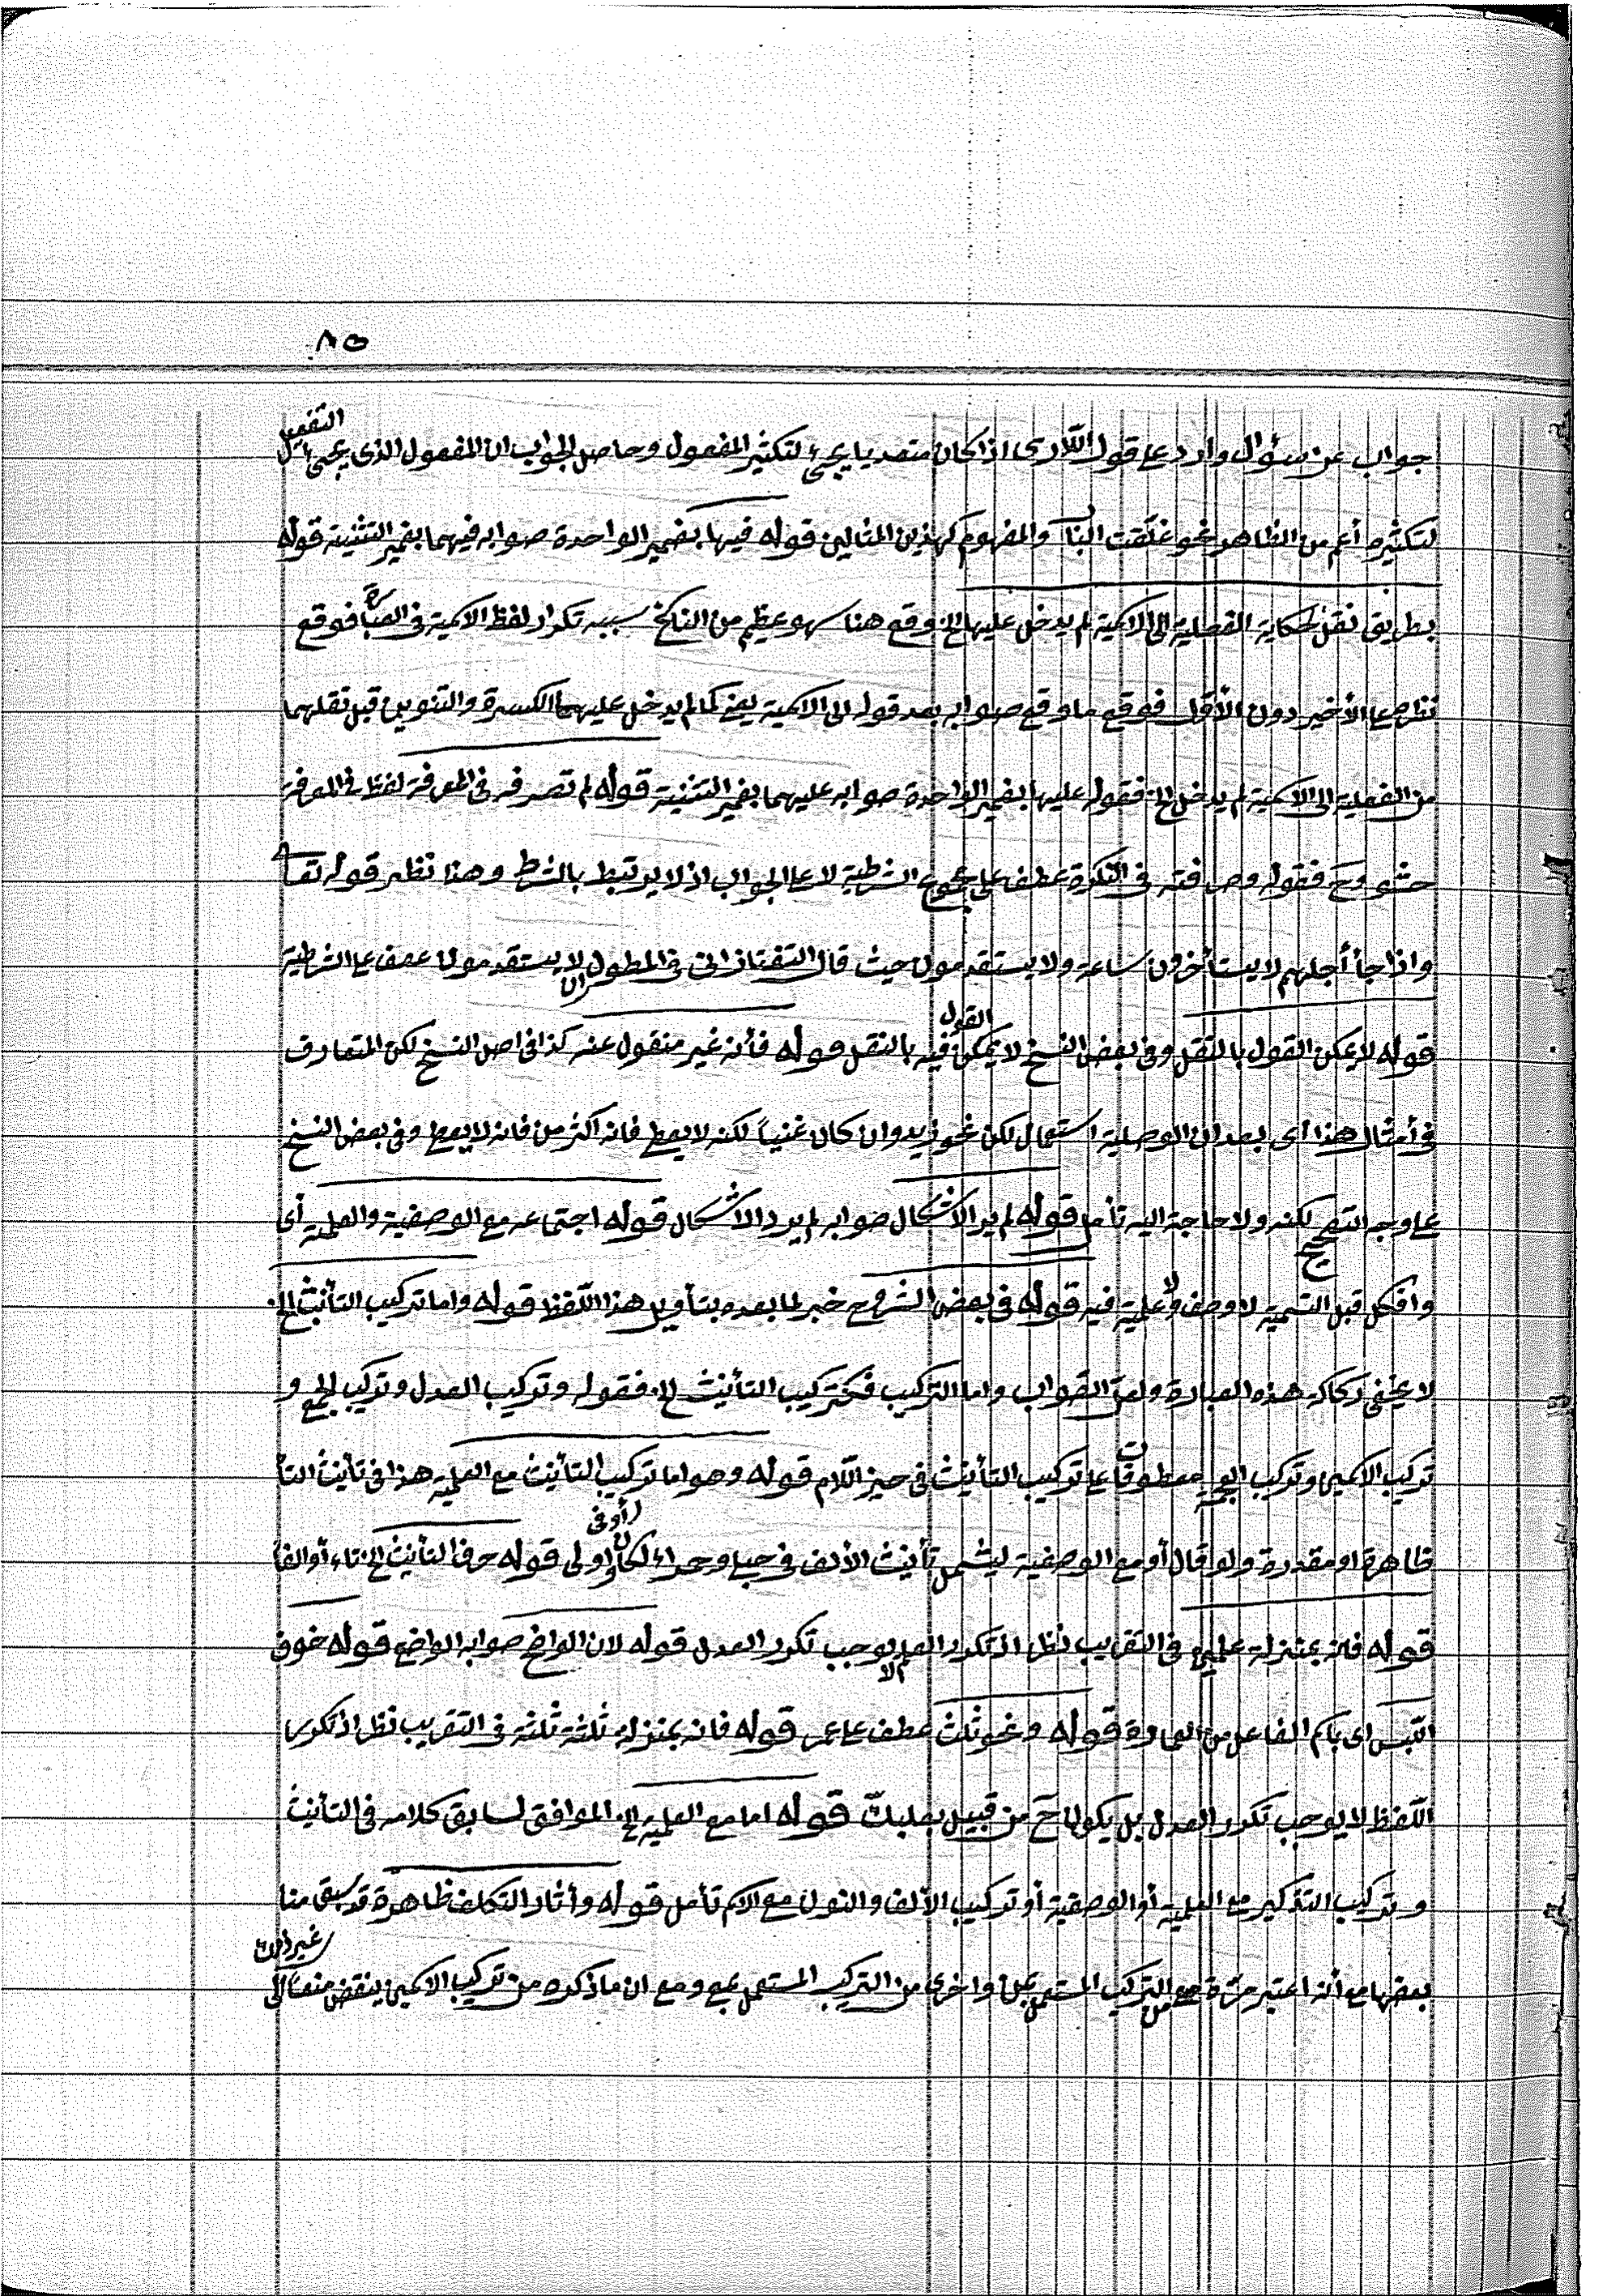 ٨٥
جواب عن سئوال وارد ع قول اللّاری اذا كان متعديا يجیٔ لتكثير المفعول وحاصل الجواب ان المفعول الذی يجیٔ التفعيل
لتكثيره أعم من الظاهر نحو غلّقت البنآ والمفهوم كهذين المثالين قوله فيها بضمير الواحدة صوابه فيهما بضمير التثنية قوله
بطريق نقل لحكاية الفعلية الی الاسمية لم يدخل عليها الخ وقع هنا سهو عظيم من الناسخ سببه تكرار لفظ الاسمية فی العبارة فوقع
نظره ع الأخير دون الأوّل فوقع ما وقع صوابه بعد قوله الی الاسمية يعنی كما لم يدخل عليهما الكسرة والتنوين قبل نقلهما
من الفعلية الی الاسمية لم يدخل الخ فقوله عليها بضمير الواحدة صوابه عليهما بضمير التثنية قوله لم تصرفه فی المعرفة لفظ فی المعرفة
حشو وح فقوله وصرفته فی النكرة عطف علی مجموع الشرطية لا ع الجواب اذ لا يرتبط بالشرط وهذا نظير قوله تعا
واذا جأ أجلهم لا يستأخرون ساعة ولا يستقدمون حيث قال التفتازانی فی المطول ان لا يستقدمون عطف ع الشرطية
قوله لا يمكن القول بالنقل وفی بعض النسخ لا يمكن القول فيه بالنقل قوله فأنه غير منقول عنه كذا فی اصل النسخ لكن المتعارف
فی أمثال هذا أی بعد ان الوصلية استعمال لكن نحو زيد وان كان غنياً لكنه لا يعط فانه اكثر من فانه لا يعط وفی بعض النسخ
ع وجه التصحيح لكنه ولا حاجة اليه تأمل قوله لم ير الاشكال صوابه لم يرد الاشكال قوله اجتماعه مع الوصفية والعلمية أی
وافكل قبل التسمية لا وصف ولا علمية فيه قوله فی بعض الشروح خبر لما بعده بتأويل هذا اللّفظ قوله واما تركيب التأنيث الخ
لا يخفی ركاكة هذه العبارة ولعلّ الصّواب واما التركيب فكتركيب التأنيث الخ فقوله وتركيب العدل وتركيب الجمع و
تركيب الاسمين وتركيب العجمة معطوفات ع تركيب التأنيث فی حيز اللّام قوله وهو اما تركيب التأنيث مع العلمية هذا فی تأنيث التأ
ظاهرة او مقدرة ولو قال أو مع الوصفية ليشمل تأنيث الألف فی حبلی وحمراء لكان أوفی واولی قوله حرفا التأنيث الخ تاء أو الفا
قوله فانه بمنزلة علمين فی التقريب نظر اذ تكرر العلم لا يوجب تكرر العدل قوله لان الواضح صوابه الواضع قوله خوف
اللّبس ای باسم الفاعل من العمارة قوله ونحو ثلث عطف ع عمر قوله فانه بمنزلة ثلثة ثلثة فی التقريب نظر اذ تكرر
اللّفظ لا يوجب تكرر العدل بل يكون ح من قبيل بعلبكّ قوله اما مع العلمية الخ الموافق لسابق كلامه فی التأنيث
وتركيب التذكير مع العلمية أو الوصفية أو تركيب الألف والنون مع الاسم تأمل قوله وأثار التكلف ظاهرة قد سبق منا
بعضها مع أنه اعتبر مرّة من التركيب المستعمل بمن واخری من التركيب المستعمل بمع ومع ان ما ذكره من تركيب الاسمين ينقض